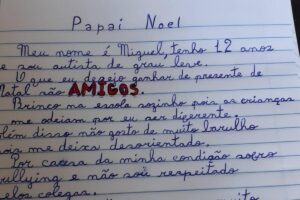 Papai Noel
Meu nome é Miguel, tenho 12 anos
e sou autista de grau leve.
O que eu desejo ganhar de presente de
Natal são AMIGOS.
Brinco na escola sozinho pois as crianças
me odeiam por eu ser diferente.
Além disso não gosto de muito barulho
pois me deixa desorientado.
Por causa da minha condição sofro
bullying e não sou respeitado
pelos colegas.